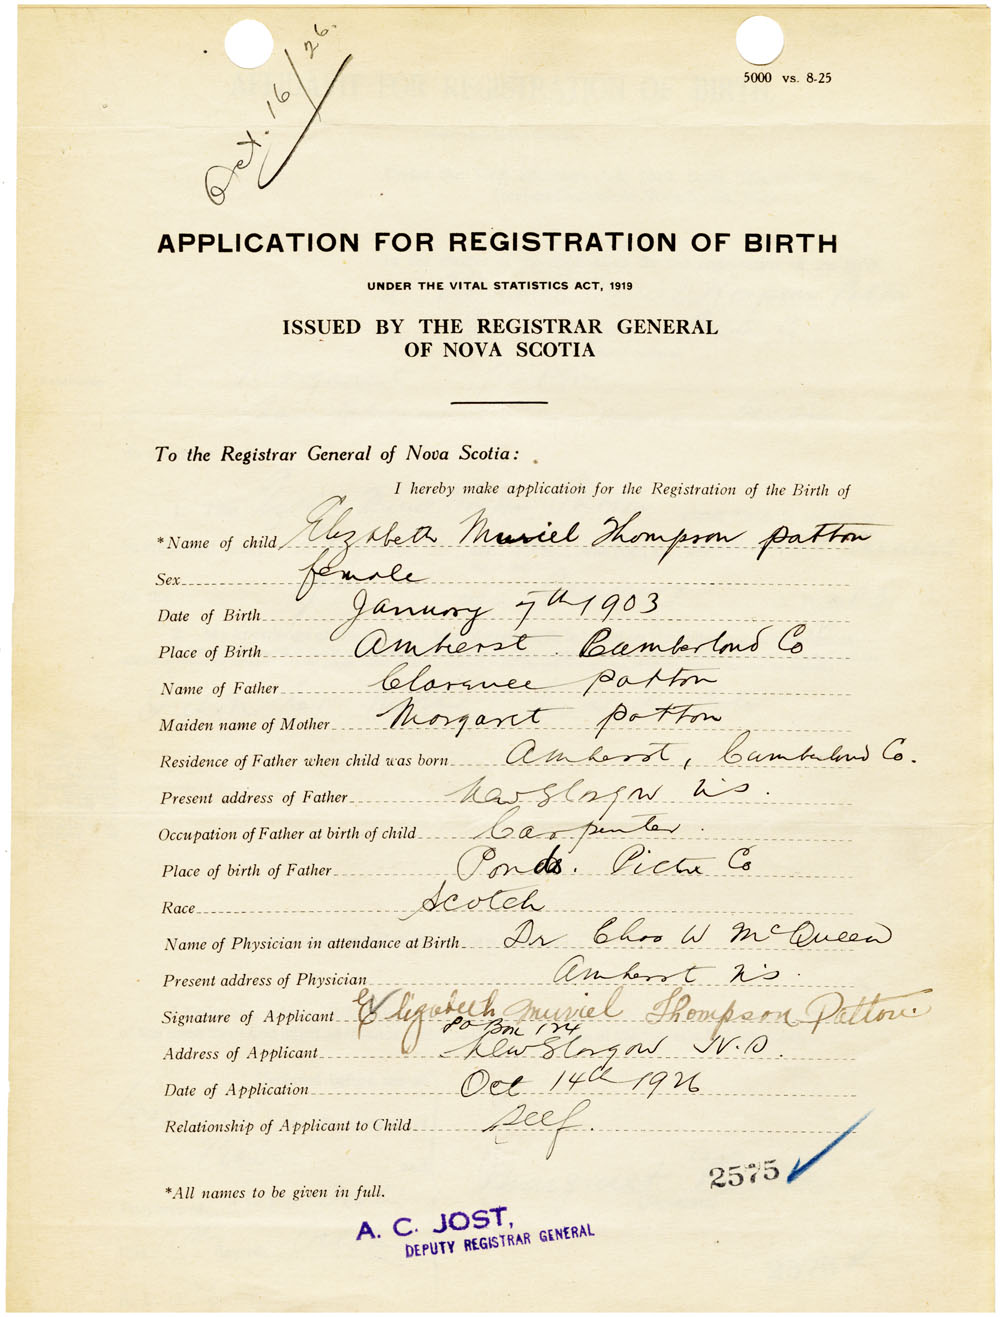 Oct. 16/26.
5000 vs. 8-25
APPLICATION FOR REGISTRATION OF BIRTH
UNDER THE VITAL STATISTICS ACT, 1919
ISSUED BY THE REGISTRAR GENERAL
OF NOVA SCOTIA
To the Registrar General of Nova Scotia:
I hereby make application for the Registration of the Birth of
*Name of child Elizabeth Muriel Thompson Patton
Sex female
Date of Birth January 7th 1903
Place of Birth Amherst. Cumberland Co
Name of Father Clarence Patton
Maiden name of Mother Margaret Patton
Residence of Father when child was born Amherst, Cumberland Co.
Present address of Father New Glasgow N.S.
Occupation of Father at birth of child Carpenter.
Place of birth of Father Ponds. Pictu Co
Race Scotch
Name of Physician in attendance at Birth Dr Chas W McQueen
Present address of Physician Amherst N.S.
Signature of Applicant Elizabeth Muriel Thompson Patton.
PO Box 124
Address of Applicant New Glasgow N.S.
Date of Application Oct 14th 1926
Relationship of Applicant to Child Self.
2575
*All names to be given in full.
A. C. JOST,
DEPUTY REGISTRAR GENERAL